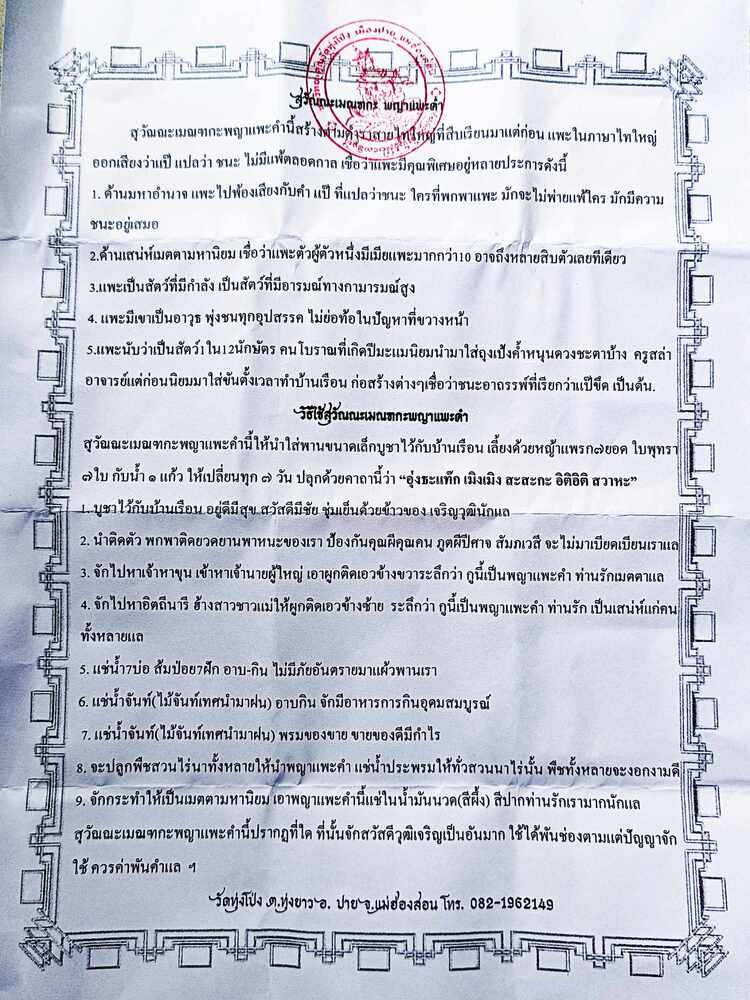 สุวัณณะเมณฑกะ พญาแพะดำ
สุวัณณะเมณฑกะพญาแพะดำนี้สร้างตามตำราสายไทใหญ่ที่สืบเรียนมาแต่ก่อน แพะในภาษาไทใหญ่
ออกเสียงว่าแป๊ แปลว่า ชนะ ไม่มีแพ้ตลอดกาล เชื่อว่าแพะมีคุณพิเศษอยู่หลายประการดังนี้
1. ด้านมหาอำนาจ แพะไปพ้องเสียงกับคำ แป๊ ที่แปลว่าชนะ ใครที่พกพาแพะ มักจะไม่พ่ายแพ้ใคร มักมีความ
ชนะอยู่เสมอ
2.ด้านเสน่ห์เมตตามหานิยม เชื่อว่าแพะตัวผู้ตัวหนึ่งมีเมียแพะมากกว่า10 อาจถึงหลายสิบตัวเลยทีเดียว
3.แพะเป็นสัตว์ที่มีกำลัง เป็นสัตว์ที่มีอารมณ์ทางกามารมณ์สูง
4. แพะมีเขาเป็นอาวุธ พุ่งชนทุกอุปสรรค ไม่ย่อท้อในปัญหาที่ขวางหน้า
5.แพะนับว่าเป็นสัตว์1ใน12นักษัตร คนโบราณที่เกิดปีมะแมนิยมนำมาใส่ถุงเป้งค้ำหนุนดวงชะตาบ้าง ครูสล่า
อาจารย์แต่ก่อนนิยมมาใส่ขันตั้งเวลาทำบ้านเรือน ก่อสร้างต่างๆเชื่อว่าชนะอาถรรพ์ที่เรียกว่าแป๊ขึด เป็นต้น.
วิธีใช้สุวัณณะเมณฑกะพญาแพะดำ
สุวัณณะเมณฑกะพญาแพะดำนี้ให้นำใส่พานขนาดเล็กบูชาไว้กับบ้านเรือน เลี้ยงด้วยหญ้าแพรก๗ยอด ใบพุทรา
๗ใบ กับน้ำ ๑ แก้ว ให้เปลี่ยนทุก ๗ วัน ปลุกด้วยคาถานี้ว่า “อุ่งธะแท๊ก เมิงเมิง สะสะกะ อิติอิติ สวาหะ”
1. บูชาไว้กับบ้านเรือน อยู่ดีมีสุข สวัสดีมีชัย ชุ่มเย็นด้วยข้าวของ เจริญวุฒินักแล
2. นำติดตัว พกพาติดยวดยานพาหนะของเรา ป้องกันคุณผีคุณคน ภูตผีปีศาจ สัมภเวสี จะไม่มาเบียดเบียนเราแล
3. จักไปหาเจ้าหาขุน เข้าหาเจ้านายผู้ใหญ่ เอาผูกติดเอวข้างขวาระลึกว่า กูนี้เป็นพญาแพะดำ ท่านรักเมตตาแล
4. จักไปหาอิตถีนารี ฮ้างสาวชาวแม่ให้ผูกติดเอวข้างซ้าย ระลึกว่า กูนี้เป็นพญาแพะดำ ท่านรัก เป็นเสน่ห์แก่คน
ทั้งหลายแล
5. แช่น้ำ7บ่อ ส้มป่อย7ฝัก อาบ-กิน ไม่มีภัยอันตรายมาแผ้วพานเรา
6. แช่น้ำจันท์(ไม้จันท์เทศนำมาฝน) อาบกิน จักมีอาหารการกินอุดมสมบูรณ์
7. แช่น้ำจันท์(ไม้จันท์เทศนำมาฝน) พรมของขาย ขายของดีมีกำไร
8. จะปลูกพืชสวนไร่นาทั้งหลายให้นำพญาแพะดำ แช่น้ำประพรมให้ทั่วสวนนาไร่นั้น พืชทั้งหลายจะงอกงามดี
9. จักกระทำให้เป็นเมตตามหานิยม เอาพญาแพะดำนี้แช่ในน้ำมันนวด(สีผึ้ง) สีปากท่านรักเรามากนักแล
สุวัณณะเมณฑกะพญาแพะดำนี้ปรากฏที่ใด ที่นั้นจักสวัสดีวุฒิเจริญเป็นอันมาก ใช้ได้พันช่องตามแต่ปัญญาจัก
ใช้ ควรค่าพันคำแล ฯ
วัดทุ่งโป่ง ต.ทุ่งยาว อ. ปาย จ.แม่ฮ่องสอน โทร. 082-1962149